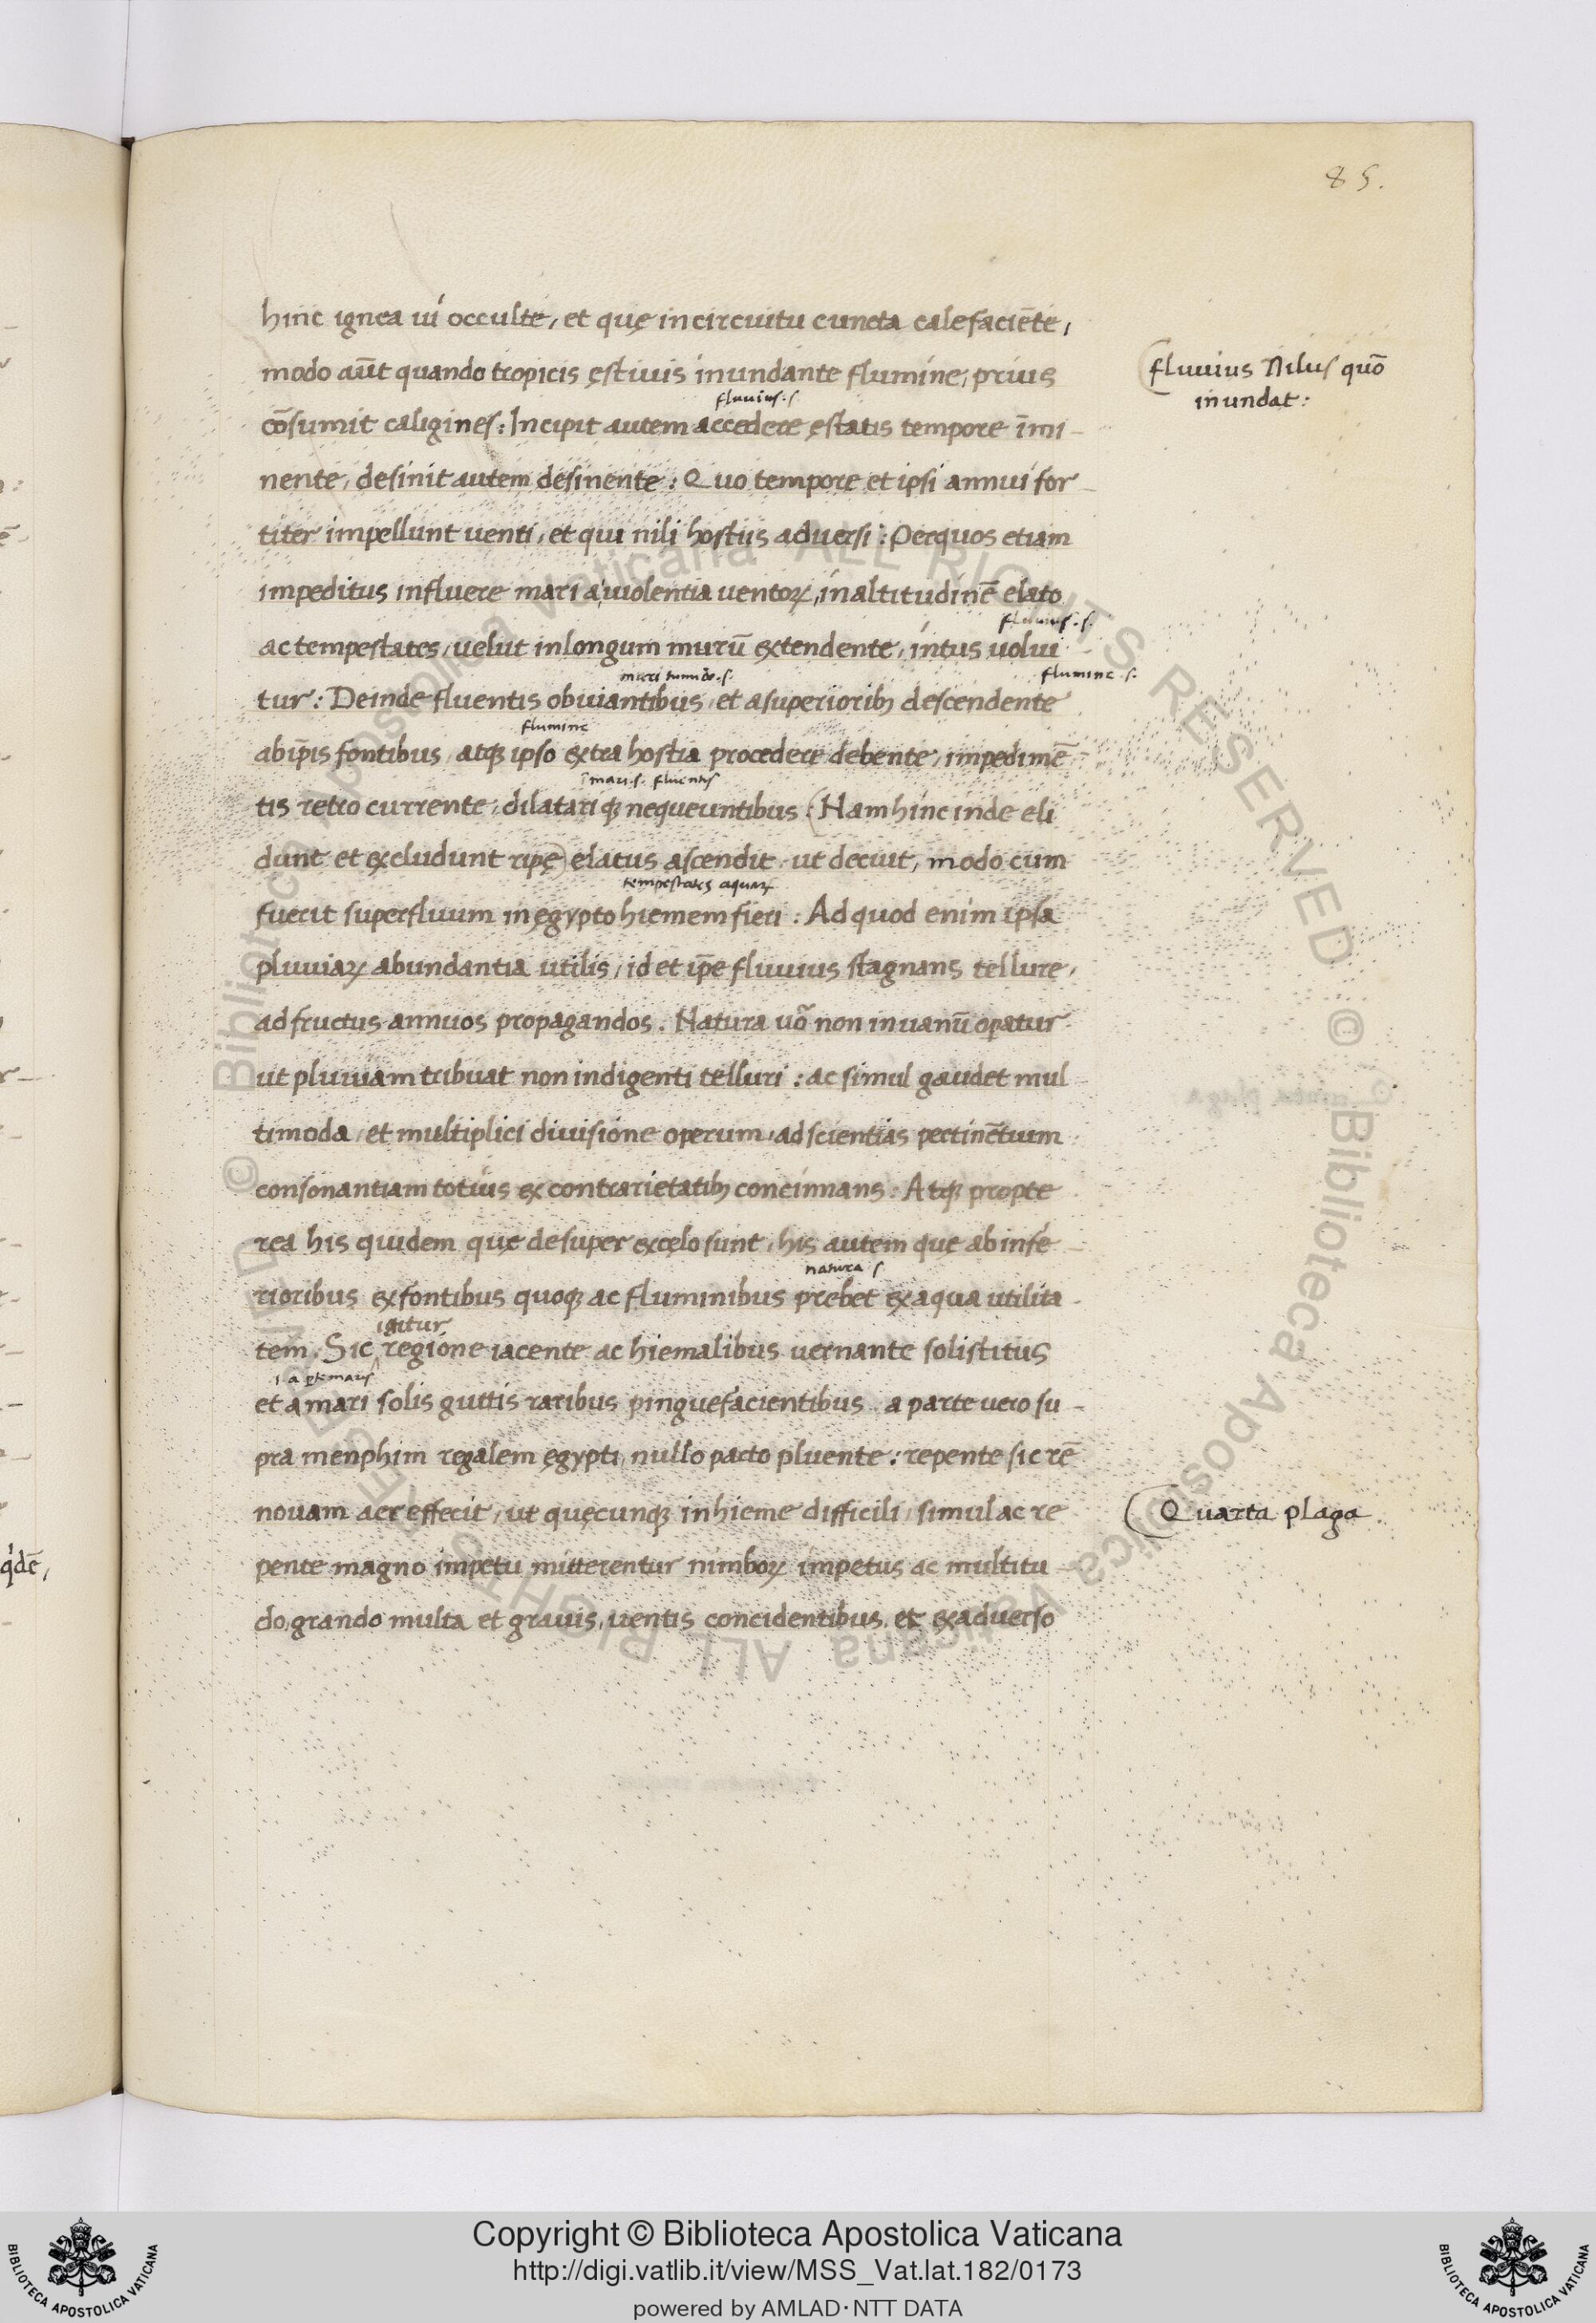 85.
hinc ignea ui occulte, et quę in circuitu cuncta calefaciēte,
modo aūt quando tropicis ęstiuis inundante flumine, prius
fluuius Nilus quō
inundat:
fluuius .s.
cōsumit caligines: Incipit autem accedere ęstatis tempore īmi-
nente, desinit autem desinente: Quo tempore et ipsi annui for-
titer impellunt uenti, et qui nili hostiis aduersi: Per quos etiam
impeditus influere mari a uiolentia uentoꝝ, in altitudinē elato
fluuius .s.
ac tempestates, uelut in longum murū extendente, intus uolui
mari tumido .s. flumine .s.
tur: Deinde fluentis obuiantibus, et a superioribꝫ descendente
flumine
ab ip̄is fontibus, atqꝫ ipso extra hostia procedere debente, impedimē
ī mari .s. fluentis
tis retro currente, dilatariqꝫ nequeuntibus. (Nam hinc inde eli
dunt et excludunt ripę) elatus ascendit, ut decuit, modo cum
tempestates aquaꝝ
fuerit superfluum in ęgypto hiemem fieri: Ad quod enim ipsa
pluuiaꝝ abundantia utilis, id et ip̄e fluuius stagnans tellure,
ad fructus annuos propagandos. Natura uō non in uanū oꝑatur
ut pluuiam tribuat non indigenti telluri: ac simul gaudet mul
timoda, et multiplici diuisione operum, ad scientias pertinētium
consonantiam totius ex contrarietatibꝫ concinnans. Atqꝫ propte
rea his quidem quę desuper ex cęlo sunt, his autem que ab infe-
natura s
rioribus ex fontibus quoqꝫ ac fluminibus prebet ex aqua utilita-
igitur
tem. Sic regione iacente ac hiemalibus uernante solistitus
.i. a ꝑte maris
et a mari solis guttis raribus pinguefacientibus, a parte uero su-
pra menphim regalem ęgypti, nullo pacto pluente: repente sic rē
nouam aer effecit, ut quęcunqꝫ in hieme difficili, simul ac re
Quarta plaga
pente magno impetu mitterentur nimboꝝ impetus ac multitu-
do, grando multa et grauis, uentis concidentibus, et ex aduerso
q'dē,
Copyright © Biblioteca Apostolica Vaticana
http://digi.vatlib.it/view/MSS_Vat.lat.182/0173
powered by AMLAD·NTT DATA
BIBLIOTECA APOSTOLICA VATICANA
BIBLIOTECA APOSTOLICA VATICANA
© Biblioteca Apostolica Vaticana ALL RIGHTS RESERVED © Biblioteca Apostolica Vaticana ALL RIGHTS RESERVED